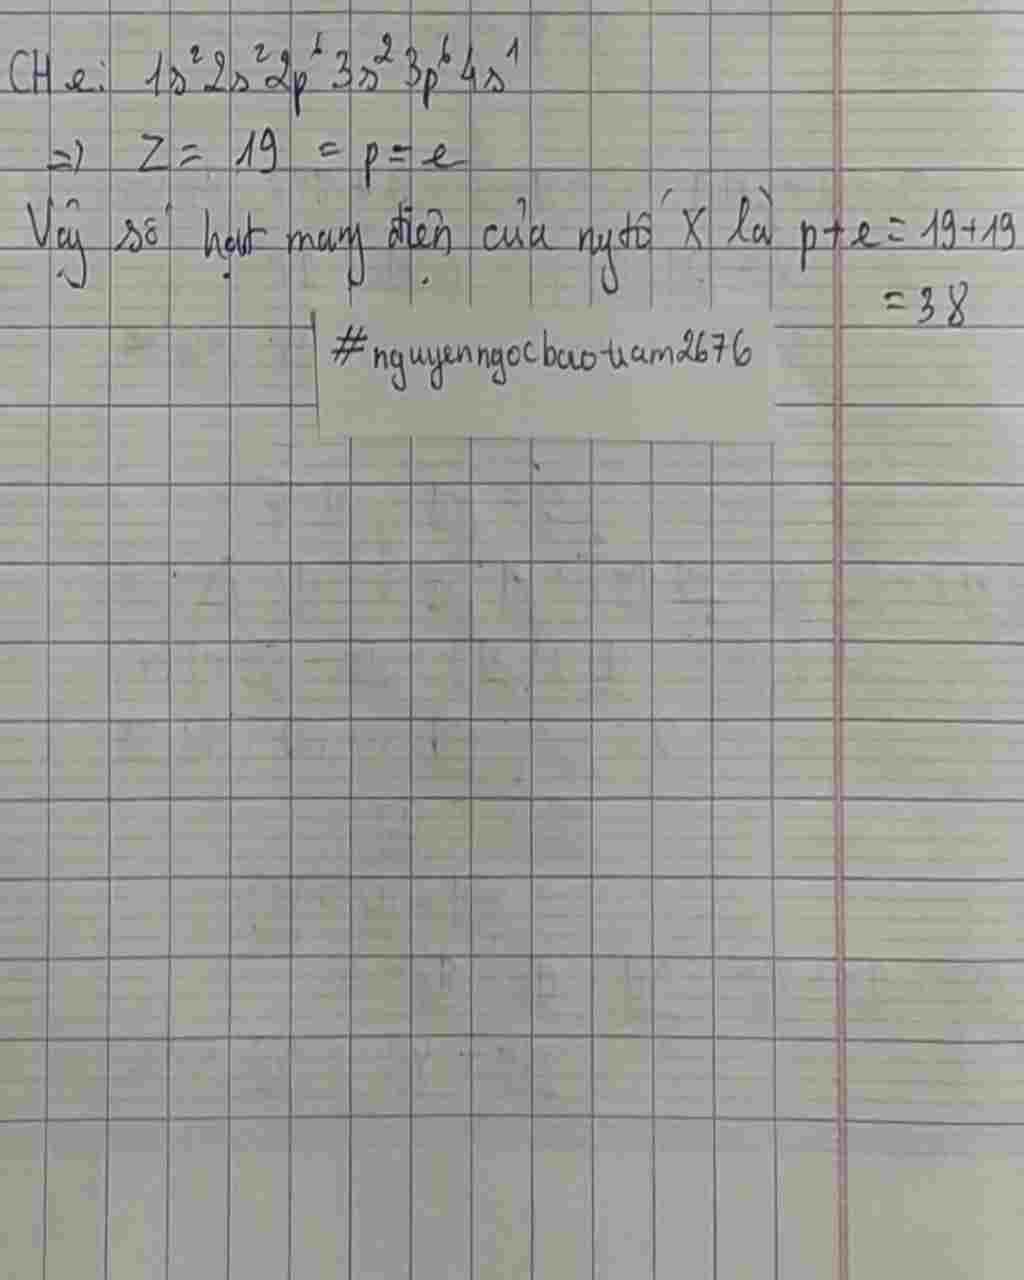 CH e: 1s² 2s² 2p⁶ 3s² 3p⁶ 4s¹
=> Z = 19 = p = e
Vậy số hạt mang điện của ng tố X là p + e = 19 + 19
= 38
#nguyenngocbaotram2676